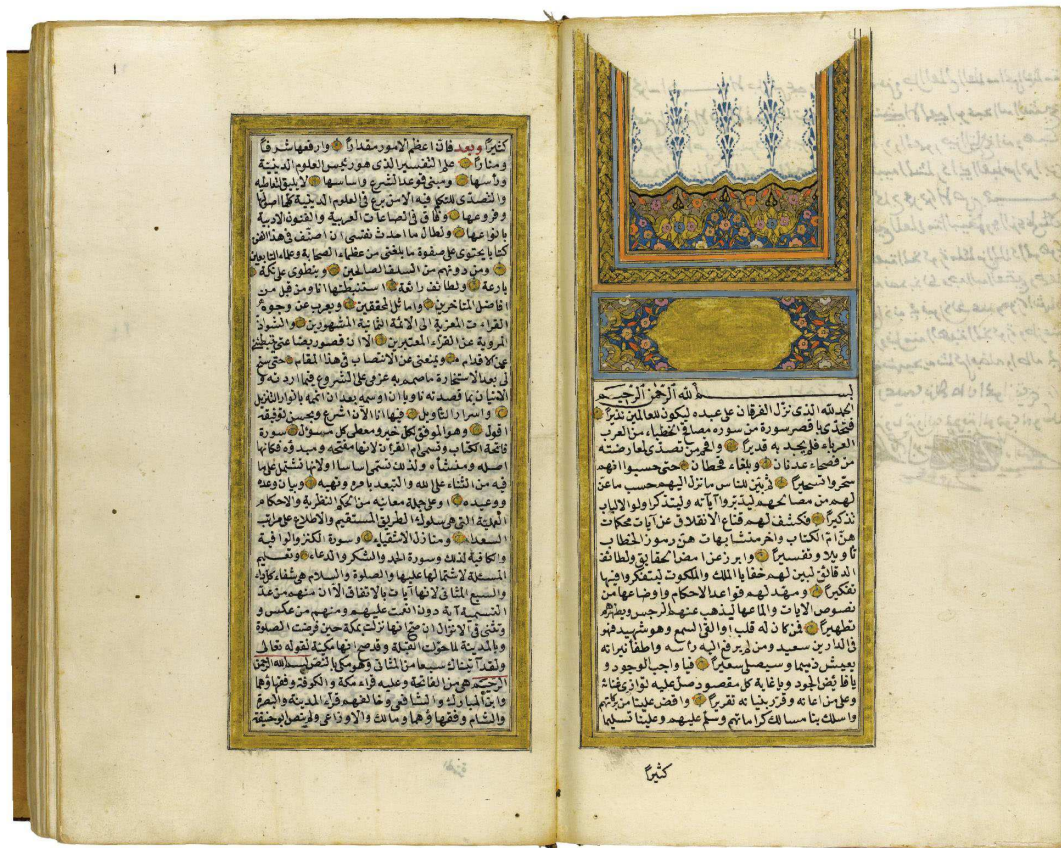 بسم الله الرحمن الرحيم
الحمد لله الذي نزل الفرقان على عبده ليكون للعالمين نذيرا
فتحدى باقصر سورة من سوره مصاقع الخطباء من العرب
العرباء فلم يجد به قديرا والحم من تصدى لمعارضته
من فصحاء عدنان وبلغاء قحطان حتى حسبوا انهم
سحروا تسحيرا ثم بين للناس ما نزل اليهم حسب ما عن
لهم من مصالحهم ليدبروا آياته وليتذكر اولو الالباب
تذكيرا فكشف لهم قناع الانغلاق عن آيات محكمات
هن ام الكتاب واخر متشابهات هن رموز الخطاب
تأويلا وتفسيرا وابرز غوامض الحقايق ولطائف
الدقائق ليبين لهم خفايا الملك والملكوت ليتفكروا فيها
تفكيرا ومهد لهم قواعد الاحكام واوضاعها من
نصوص الايات والماعها ليذهب عنهم الرجس ويطهرهم
تطهيرا فمن كان له قلب او القى السمع وهو شهيد فهو
في الدارين سعيد ومن لم يرفع اليه رأسه واطفأ نبراسه
يعيش ذميما وسيصلى سعيرا فيا واجب الوجود و
يا فايض الجود ويا غاية كل مقصود صل عليه توازى غناءه
وعلى من اعانه وقرر بنيانه تقريرا وافض علينا من بركاتهم
واسلك بنا مسالك كراماتهم وسلم عليهم وعلينا تسليما
كثيرا
كثيرا وبعد فان اعظم الامور مقدارا وارفعها شرفا
ومنارا علم التفسير الذي هو رئيس العلوم الدينية
ورأسها ومبنى قواعد الشرع واساسها لا يليق لتعاطيه
والتصدى للتكلم فيه الا من برع في العلوم الدينية كلها اصولها
وفروعها وفاق في الصناعات العربية والفنون الادبية
بانواعها ولطال ما احدث نفسي ان اصنف في هذا الفن
كتابا يحتوى على صفوة ما بلغني من عظماء الصحابة وعلماء التابعين
ومن دونهم من السلف الصالحين وينطوى على نكت
بارعة ولطائف رائعة استنبطتها انا ومن قبلي من
افاضل المتاخرين واماثل المحققين ويعرب عن وجوه
القراءت المعزية الى الائمة الثمانية المشهورين والشواذ
المروية عن القراء المعتبرين الا ان قصور بضاعتي يثبطني
عن الاقدام ويمنعني عن الانتصاب في هذا المقام حتى سنح
لي بعد الاستخارة ما صمم به عزمي على الشروع فيما اردته و
الاتيان بما قصدته ناويا ان اوسمه بعد ان اتمه بانوار التنزيل
واسرار التأويل فها انا الآن اشرع وبحسن توفيقه
اقول وهو الموفق لكل خير ومعطى كل مسؤل سورة
فاتحة الكتاب وتسمى ام القرآن لانها مفتتحه ومبدؤه فكانها
اصله ومنشأه ولذلك تسمى اساسا ولانها تشتمل على ما
فيه من الثناء على الله والتعبد بامره ونهيه وبيان وعده
ووعيده او على جملة معانيه من الحكم النظرية والاحكام
العملية التي هي سلوك الطريق المستقيم والاطلاع على مراتب
السعداء ومنازل الاشقياء وسورة الكنز والوافية
والكافية لذلك وسورة الحمد والشكر والدعاء وتعليم
المسئلة لاشتمالها عليها والصلوة والسلام هي شفاء كل داء
والسبع المثاني لانها آيات بالاتفاق الا ان منهم من عد
التسمية آية دون انعمت عليهم ومنهم من عكس و
وتثنى في الانزال ان صح انها نزلت بمكة حين فرضت الصلوة
وبالمدينة لما حولت القبلة وقد صح انها مكية لقوله تعالى
ولقد آتيناك سبعا من المثاني وهو مكي بالنص بسم الله الرحمن
الرحيم هي من الفاتحة وعليه قراء مكة والكوفة وفقهاؤهما
وابن المبارك والشافعي وخالفهم قراء المدينة والبصرة
والشام وفقهاؤهما ومالك والاوزاعي ولم ينص ابو حنيفة